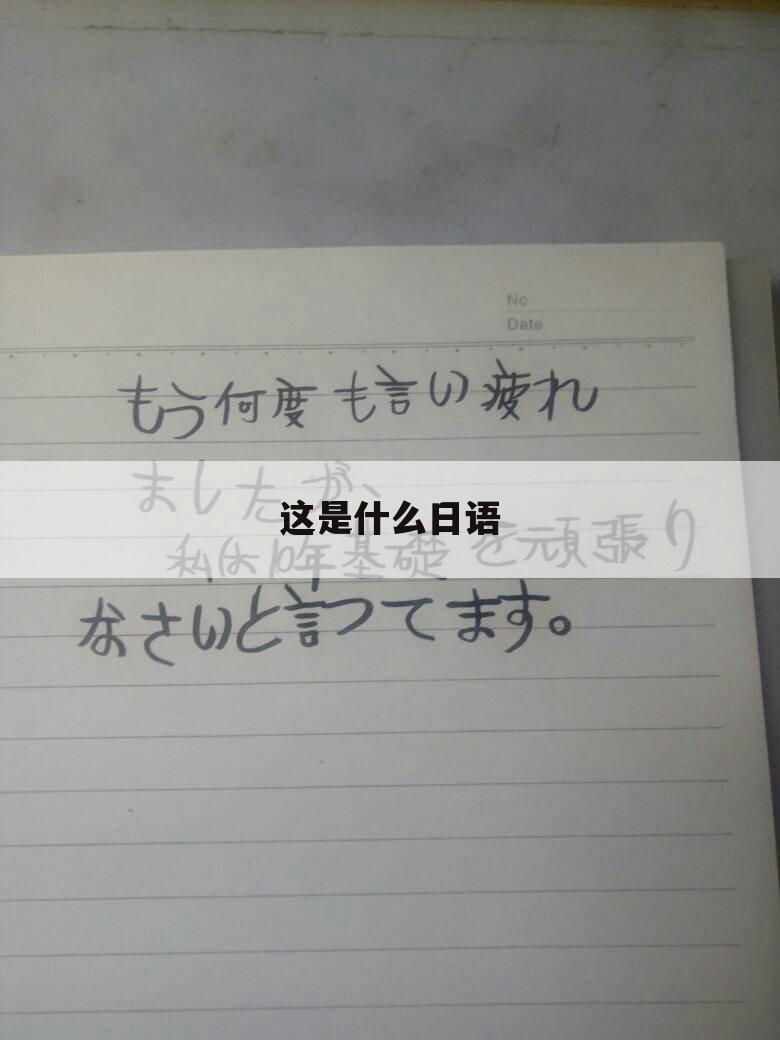 No
Date
もう何度も言い疲れ
ましたが、
这是什么日语
私は10年基礎を頑張り
なさいと言ってます。